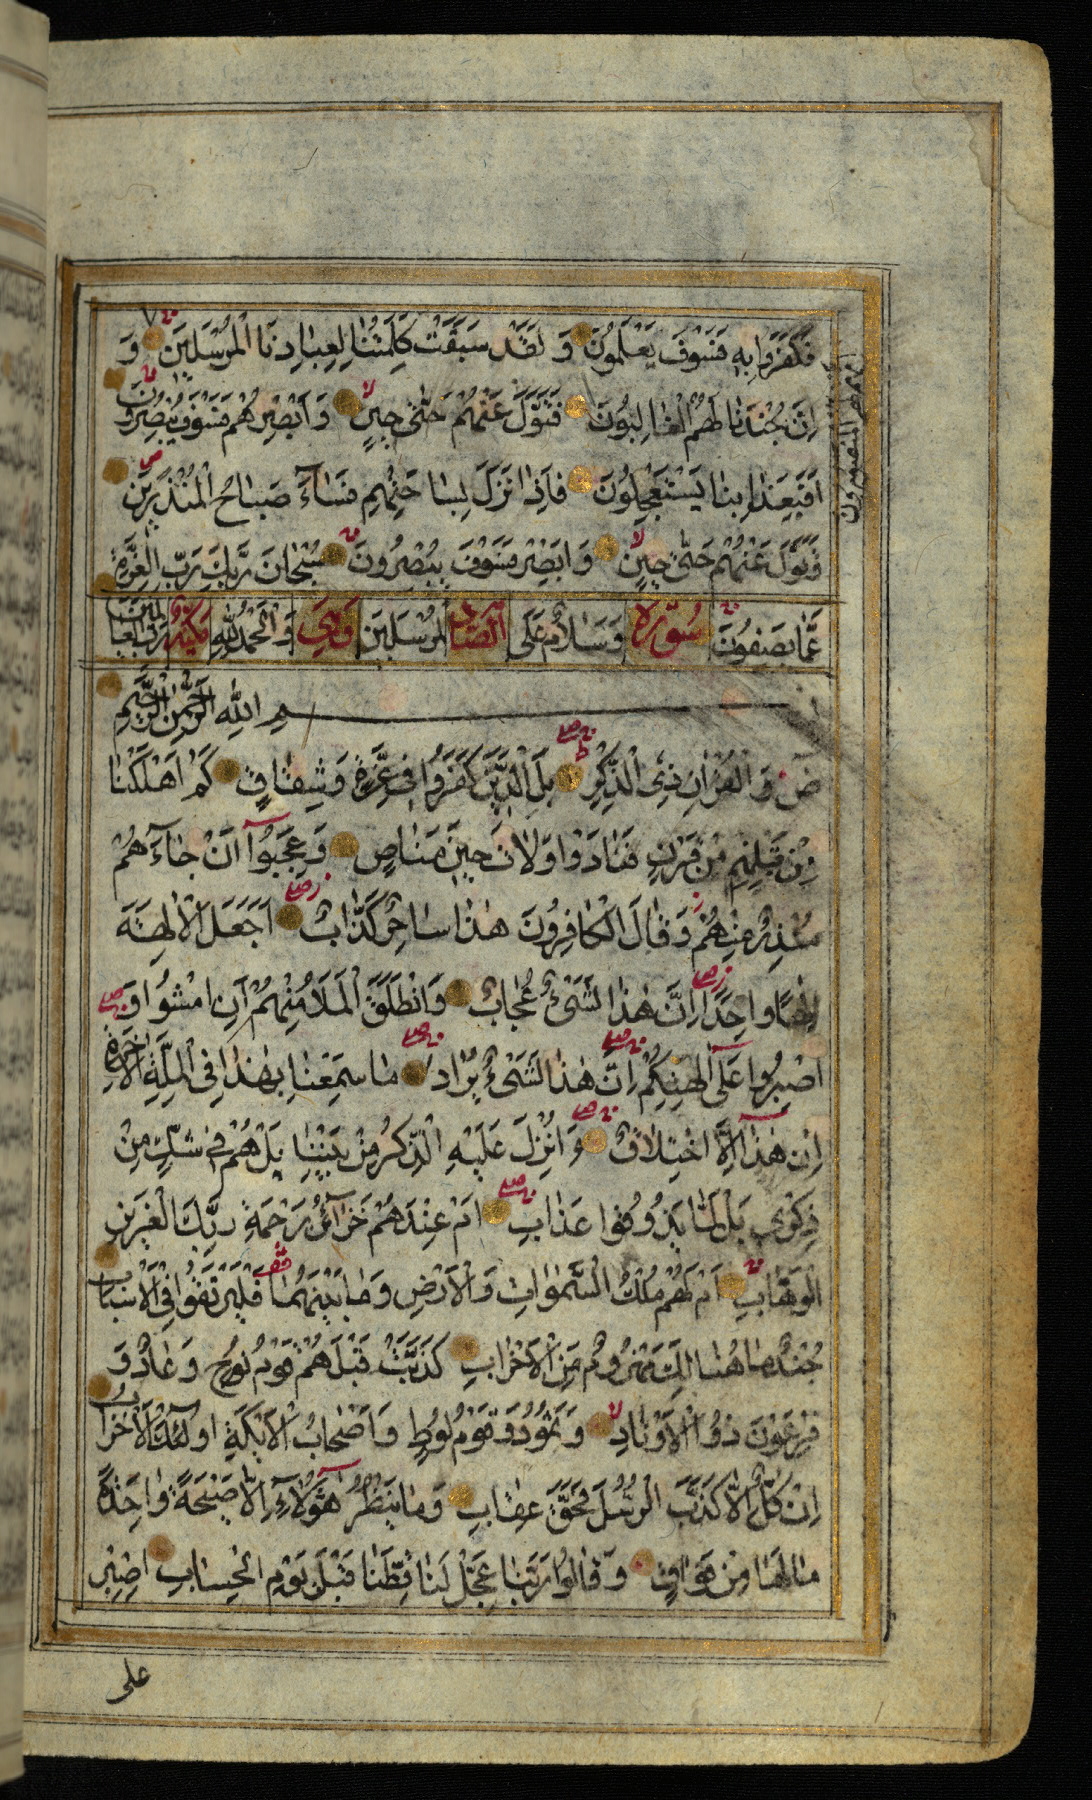 فَكَفَرُوا بِهِ فَسَوْفَ يَعْلَمُونَ وَ لَقَدْ سَبَقَتْ كَلِمَتُنَا لِعِبَادِنَا الْمُرْسَلِينَ وَ
اِنَّ جُنْدَنَا لَهُمُ الْغَالِبُونَ فَتَوَلَّ عَنْهُمْ حَتّٰى حِينٍ وَ اَبْصِرْهُمْ فَسَوْفَ يُبْصِرُونَ
اَفَبِعَذَابِنَا يَسْتَعْجِلُونَ فَاِذَا نَزَلَ بِسَاحَتِهِمْ فَسَآءَ صَبَاحُ الْمُنْذَرِينَ
وَتَوَلَّ عَنْهُمْ حَتّٰى حِينٍ وَ اَبْصِرْ فَسَوْفَ يُبْصِرُونَ سُبْحَانَ رَبِّكَ رَبِّ الْعِزَّةِ
عَمَّا يَصِفُونَ سُورَة وَ سَلَامٌ عَلَى الصاد الْمُرْسَلِينَ وَهِيَ وَ الْحَمْدُ لِلّٰهِ مَكِّيَّة رَبِّ الْعَالَمِينَ
بِسْمِ اللّٰهِ الرَّحْمٰنِ الرَّحِيمِ
صٓ وَ الْقُرْاٰنِ ذِى الذِّكْرِ بَلِ الَّذِينَ كَفَرُوا فِى عِزَّةٍ وَ شِقَاقٍ كَمْ اَهْلَكْنَا
مِنْ قَبْلِهِمْ مِنْ قَرْنٍ فَنَادَوْا وَلَاتَ حِينَ مَنَاصٍ وَ عَجِبُوٓا اَنْ جَآءَهُمْ
مُنْذِرٌ مِنْهُمْ وَ قَالَ الْكَافِرُونَ هٰذَا سَاحِرٌ كَذَّابٌ اَجَعَلَ الْاٰلِهَةَ
اِلٰهًا وَاحِدًا اِنَّ هٰذَا لَشَىْءٌ عُجَابٌ وَ انْطَلَقَ الْمَلَاُ مِنْهُمْ اَنِ امْشُوا وَ
اصْبِرُوا عَلٰٓى اٰلِهَتِكُمْ اِنَّ هٰذَا لَشَىْءٌ يُرَادُ مَا سَمِعْنَا بِهٰذَا فِى الْمِلَّةِ الْاٰخِرَةِ
اِنْ هٰذَآ اِلَّا اخْتِلَاقٌ ءَ اُنْزِلَ عَلَيْهِ الذِّكْرُ مِنْ بَيْنِنَا بَلْ هُمْ فِى شَكٍّ مِنْ
ذِكْرِى بَلْ لَمَّا يَذُوقُوا عَذَابِ اَمْ عِنْدَهُمْ خَزَآئِنُ رَحْمَةِ رَبِّكَ الْعَزِيزِ
الْوَهَّابِ اَمْ لَهُمْ مُلْكُ السَّمٰوَاتِ وَ الْاَرْضِ وَ مَا بَيْنَهُمَا فَلْيَرْتَقُوا فِى الْاَسْبَابِ
جُنْدٌ مَا هُنَالِكَ مَهْزُومٌ مِنَ الْاَحْزَابِ كَذَّبَتْ قَبْلَهُمْ قَوْمُ نُوحٍ وَ عَادٌ وَ
فِرْعَوْنُ ذُوا الْاَوْتَادِ وَ ثَمُودُ وَ قَوْمُ لُوطٍ وَ اَصْحَابُ الْاَيْكَةِ اُولٰٓئِكَ الْاَحْزَابُ
اِنْ كُلٌّ اِلَّا كَذَّبَ الرُّسُلَ فَحَقَّ عِقَابِ وَ مَا يَنْظُرُ هٰٓؤُلَآءِ اِلَّا صَيْحَةً وَاحِدَةً
مَا لَهَا مِنْ فَوَاقٍ وَ قَالُوا رَبَّنَا عَجِّلْ لَنَا قِطَّنَا قَبْلَ يَوْمِ الْحِسَابِ اِصْبِرْ
على